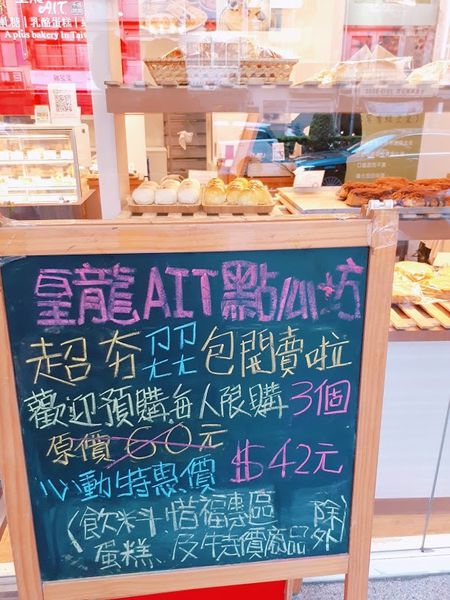 皇龍 AIT
軋糖|乳酪蛋糕|
A plus bakery In Taiw
皇龍AIT點心坊
超夯ㄗㄤㄗㄤ包開賣啦
歡迎預購每人限購3個
原價60元
心動特惠價 $42元
(飲料惜福專區 除
蛋糕、及特價商品外)